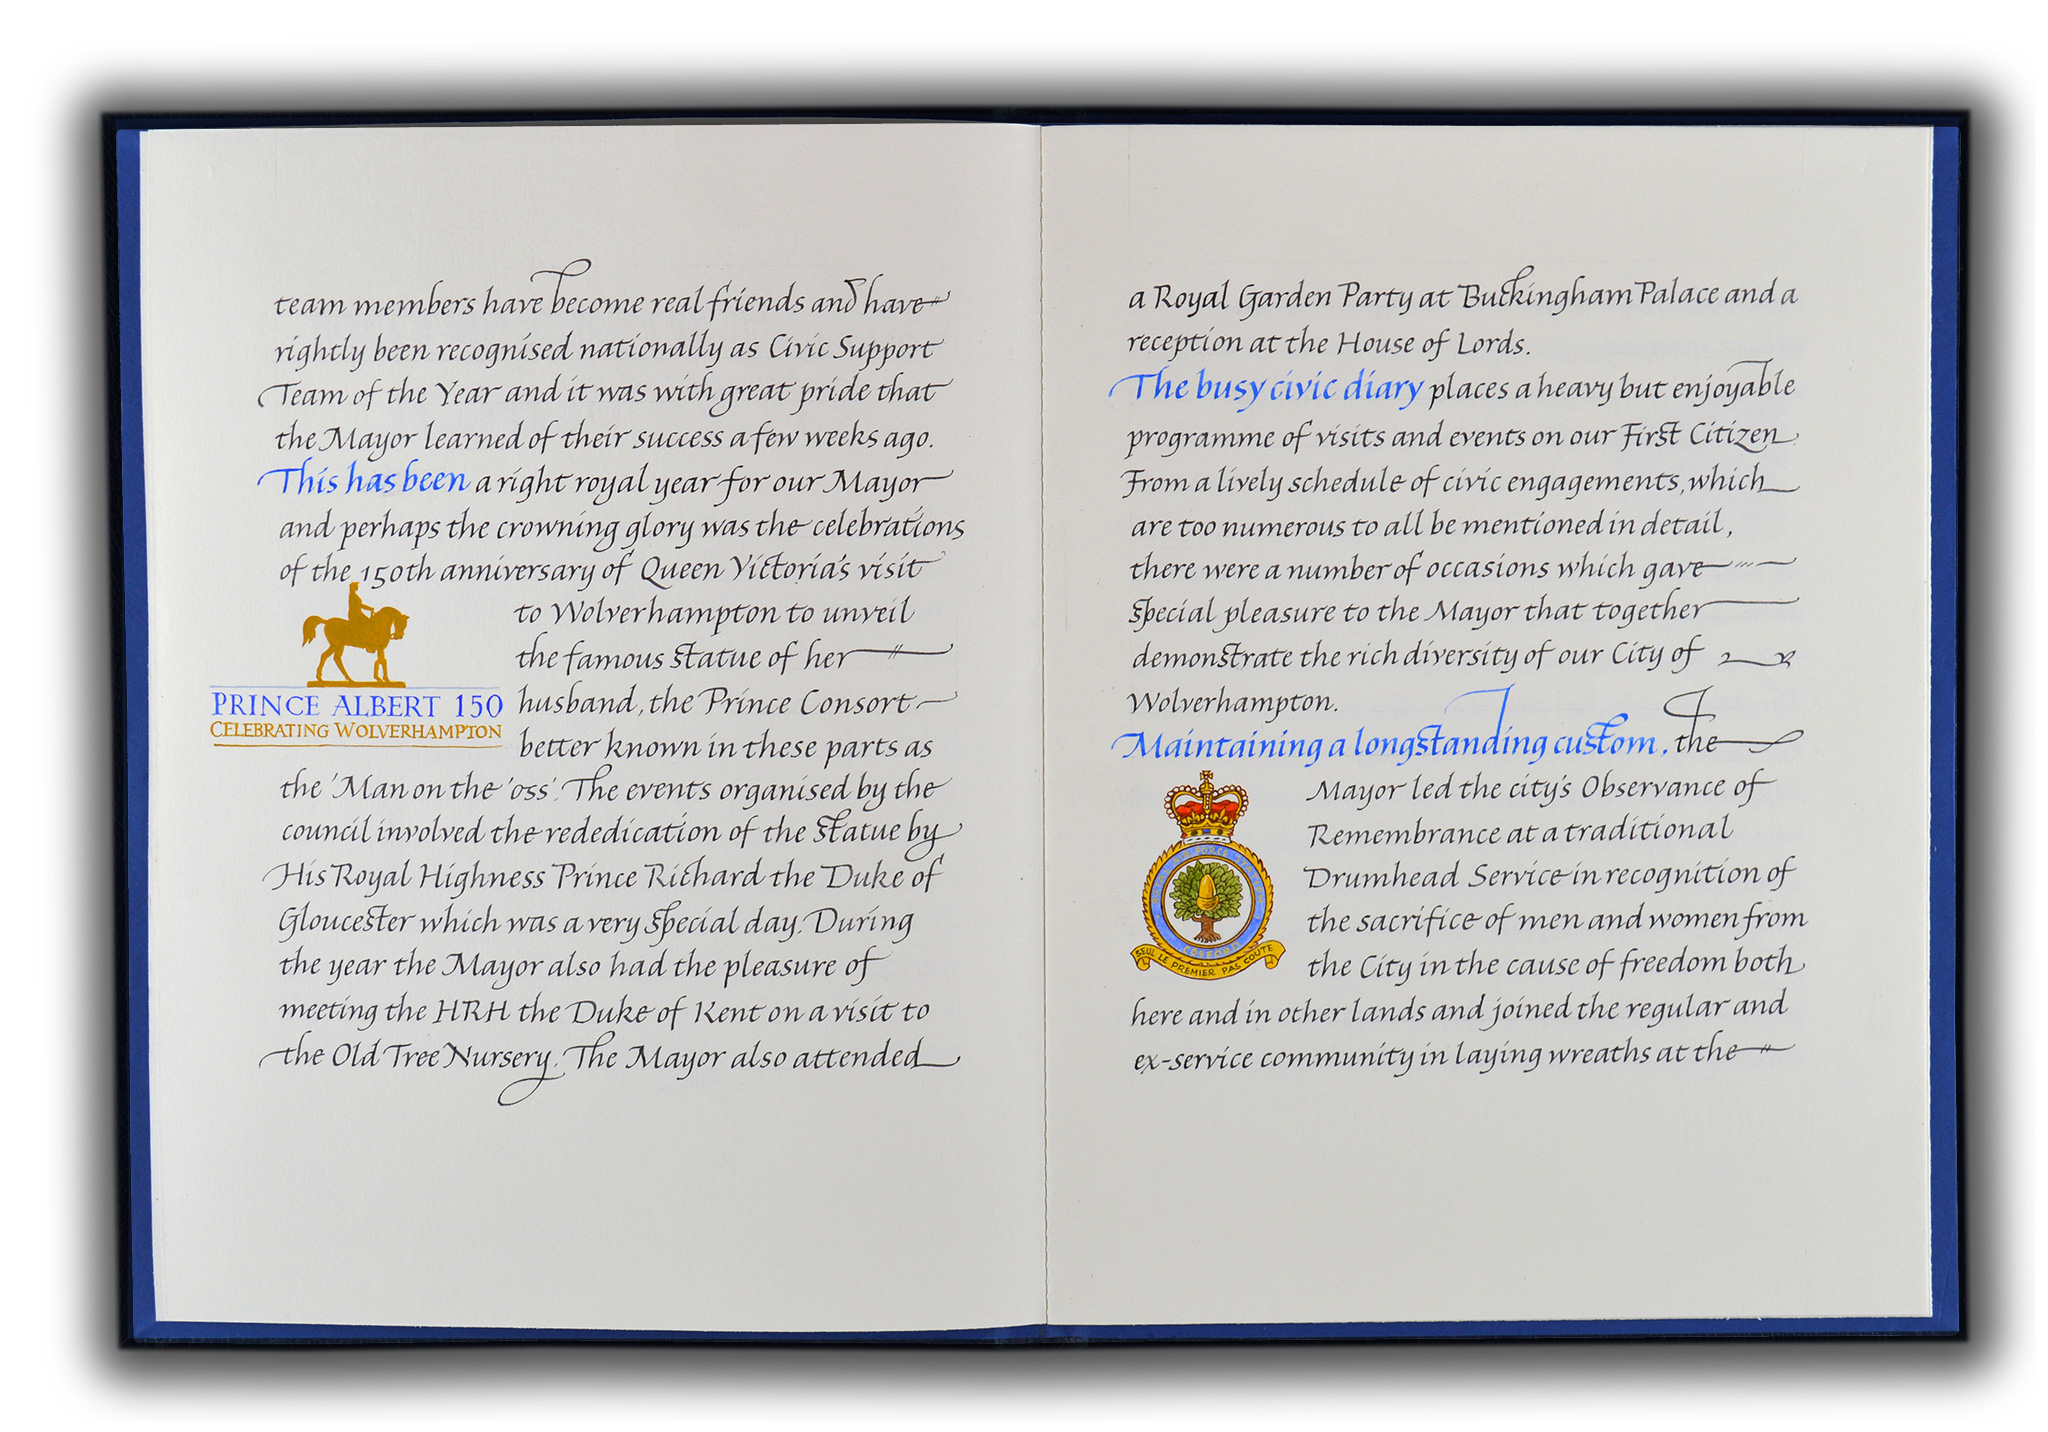 team members have become real friends and have
rightly been recognised nationally as Civic Support
Team of the Year and it was with great pride that
the Mayor learned of their success a few weeks ago.
This has been a right royal year for our Mayor
and perhaps the crowning glory was the celebrations
of the 150th anniversary of Queen Victoria's visit
to Wolverhampton to unveil
the famous statue of her
husband, the Prince Consort
better known in these parts as
PRINCE ALBERT 150
CELEBRATING WOLVERHAMPTON
the 'Man on the 'oss'. The events organised by the
council involved the rededication of the statue by
His Royal Highness Prince Richard the Duke of
Gloucester which was a very special day. During
the year the Mayor also had the pleasure of
meeting the HRH the Duke of Kent on a visit to
the Old Tree Nursery. The Mayor also attended
a Royal Garden Party at Buckingham Palace and a
reception at the House of Lords.
The busy civic diary places a heavy but enjoyable
programme of visits and events on our First Citizen.
From a lively schedule of civic engagements, which
are too numerous to all be mentioned in detail,
there were a number of occasions which gave
special pleasure to the Mayor that together
demonstrate the rich diversity of our City of
Wolverhampton.
Maintaining a longstanding custom, the
Mayor led the city's Observance of
Remembrance at a traditional
Drumhead Service in recognition of
the sacrifice of men and women from
the City in the cause of freedom both
SEUL LE PREMIER PAS COUTE
here and in other lands and joined the regular and
ex-service community in laying wreaths at the